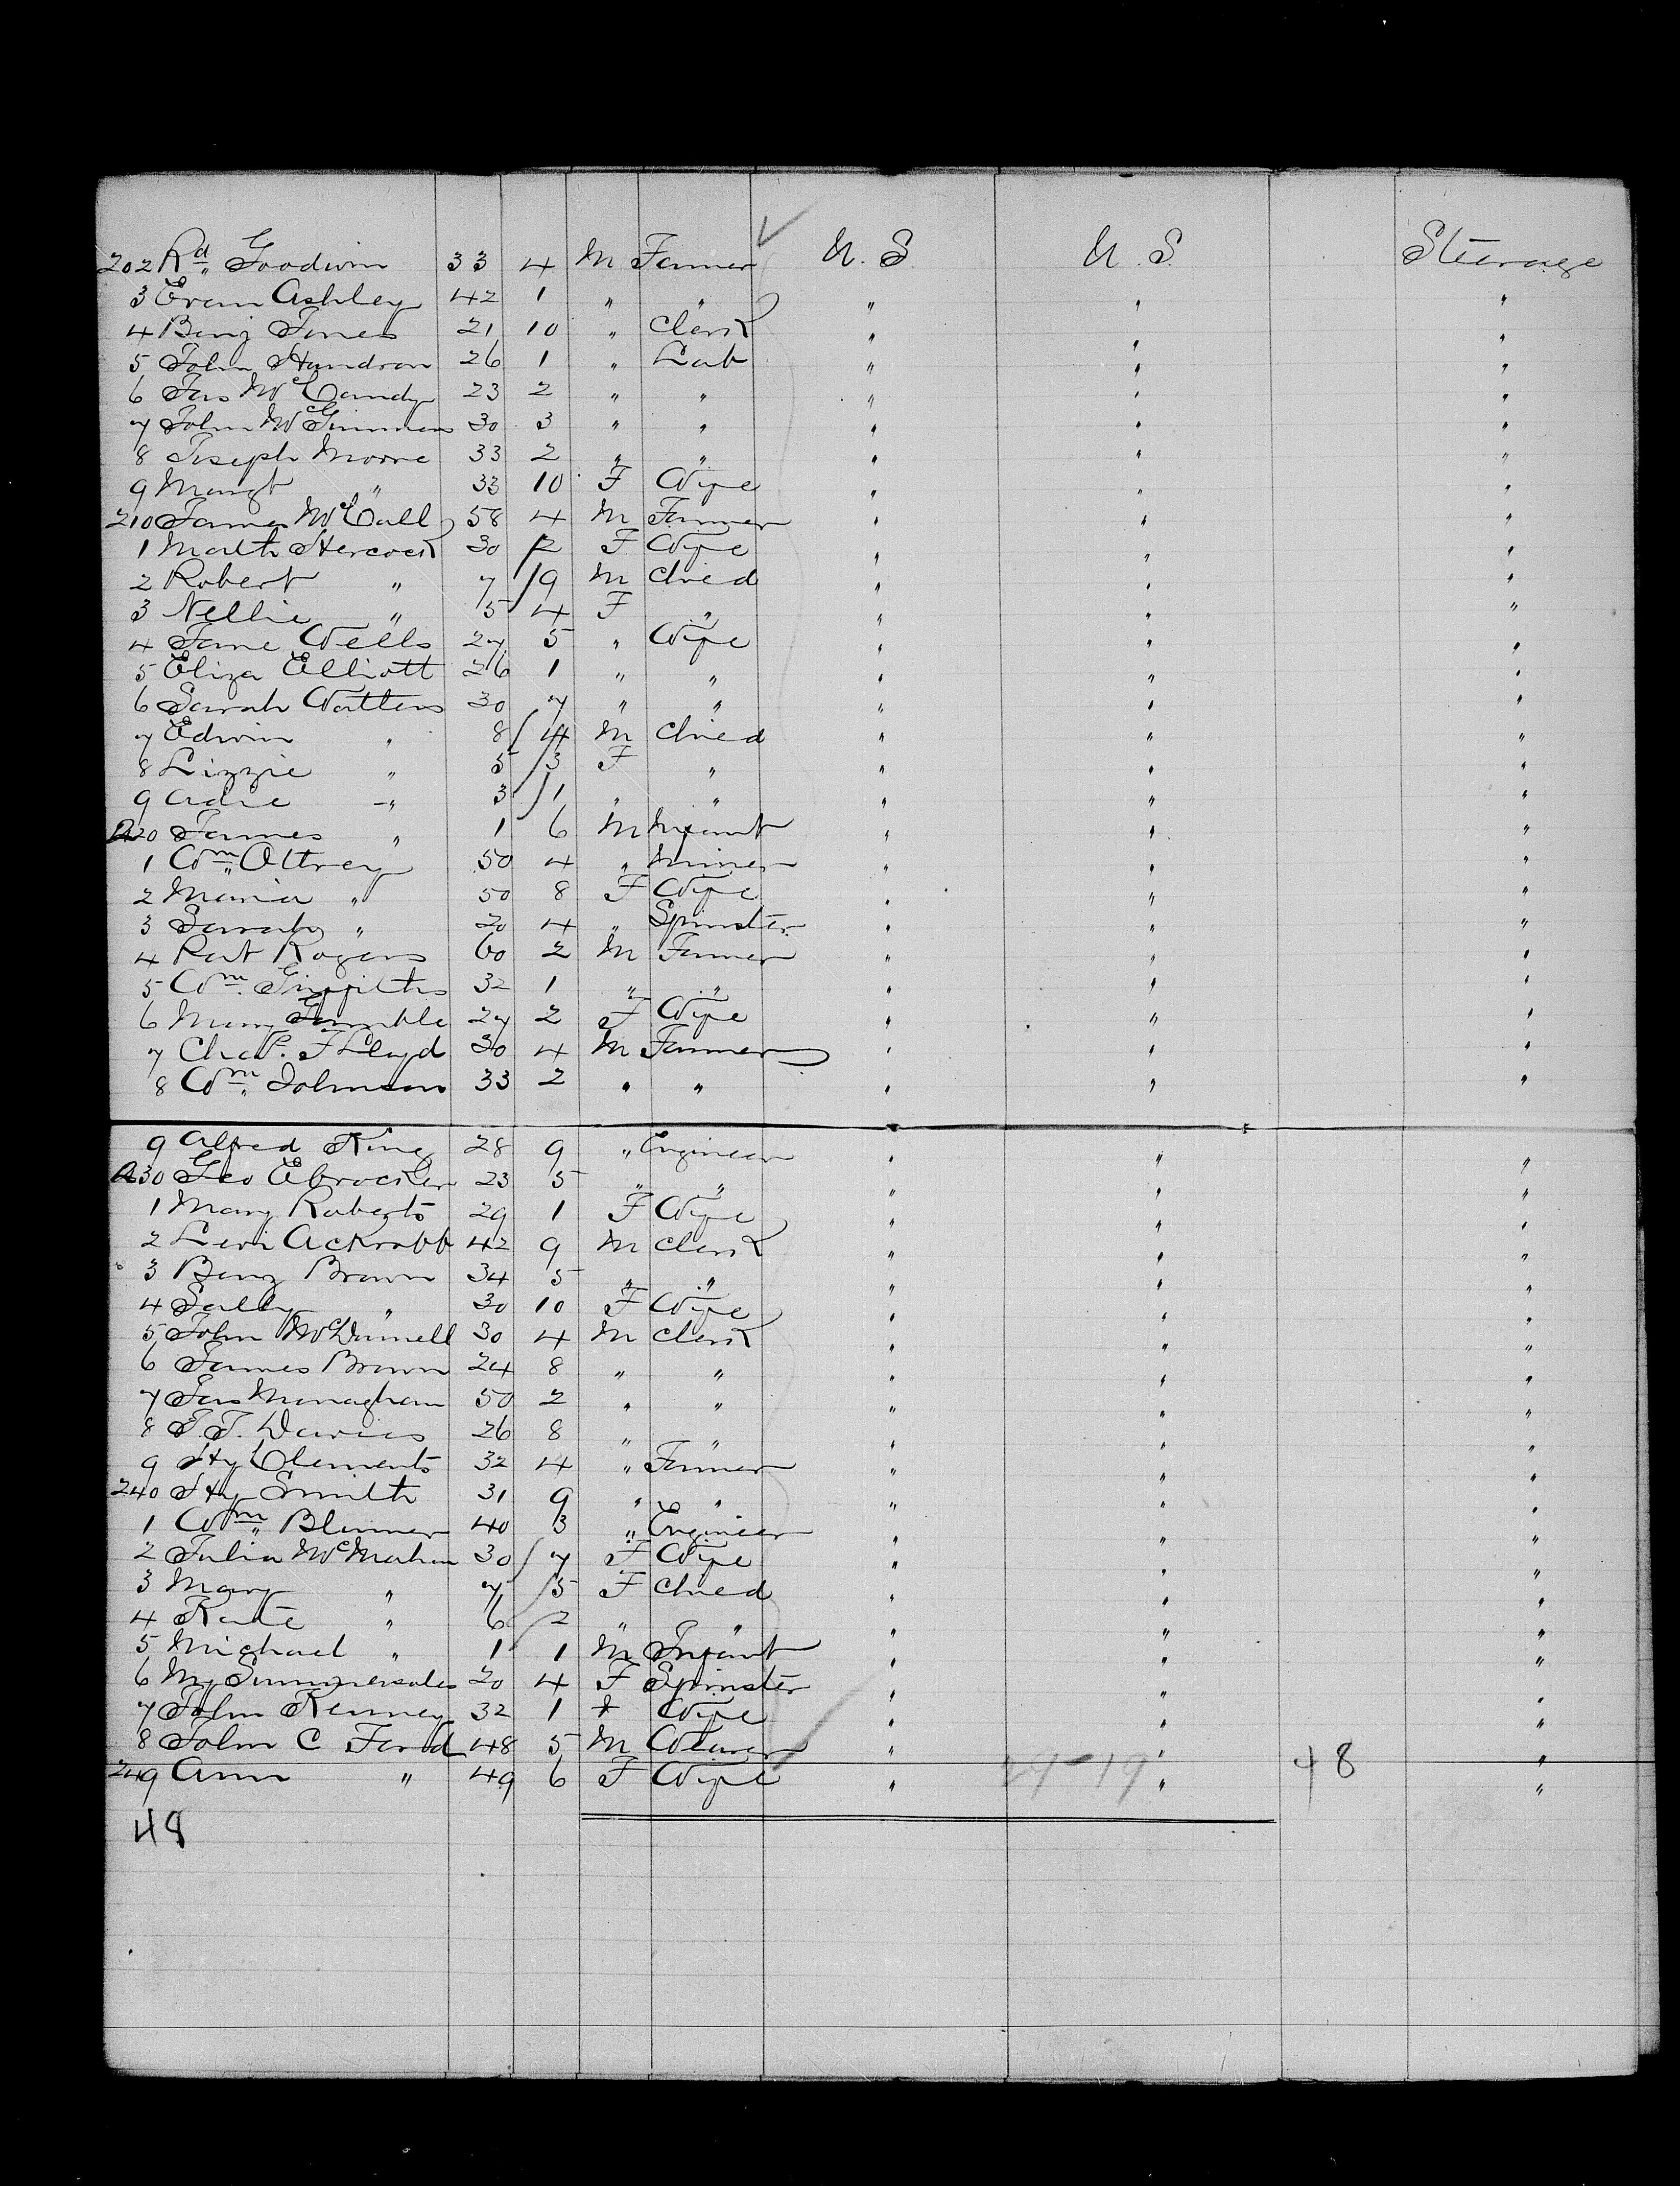 202 Rd Goodwin 33 4 M Farmer U.S. U.S. Steerage
3 Evan Ashley 42 1 " " " " "
4 Benj Jones 21 10 " Clerk " " "
5 John Handron 26 1 " Lab " " "
6 Jas McCandy 23 2 " " " " "
7 John McGimmens 30 3 " " " " "
8 Joseph Moore 33 2 " " " " "
9 Margt " 33 10 F Wife " " "
210 James McCall 58 4 M Farmer " " "
1 Math Hercock 30 2 F Wife " " "
2 Robert " 7 9 M Child " " "
3 Nellie " 5 4 F " " " "
4 Jane Wells 27 5 " Wife " " "
5 Eliza Elliott 26 1 " " " " "
6 Sarah Watters 30 7 " " " " "
7 Edwin " 8 4 M Child " " "
8 Lizzie " 5 3 F " " " "
9 Adie " 3 1 " " " " "
220 James " 1 6 M Infant " " "
1 Wm Ottrey 50 4 " Miner " " "
2 Maria " 50 8 F Wife " " "
3 Sarah " 20 4 " Spinster " " "
4 Pat Rogers 60 2 M Farmer " " "
5 Wm Griffiths 32 1 " " " " "
6 Mary Gamble 27 2 F Wife " " "
7 Chas. F Lloyd 30 4 M Farmer " " "
8 Wm Johnson 33 2 " " " " "
9 Alfred King 28 9 " Engineer " " "
230 Geo Ebrocker 23 5 " " " " "
1 Mary Roberts 29 1 F Wife " " "
2 Levi Ackrabb 42 9 M Clerk " " "
3 Benj Brown 34 5 " " " " "
4 Sally " 30 10 F Wife " " "
5 John McDonnell 30 4 M Clerk " " "
6 James Brown 24 8 " " " " "
7 Jas Monaghan 50 2 " " " " "
8 T. T. Davies 26 8 " " " " "
9 Hy Clements 32 4 " Farmer " " "
240 Hy Smith 31 9 " " " " "
1 Wm Blinner 40 3 " Engineer " " "
2 Julia McMahon 30 7 F Wife " " "
3 Mary " 7 5 F Child " " "
4 Kate " 6 2 " " " " "
5 Michael " 1 1 M Infant " " "
6 My Summersales 20 4 F Spinster " " "
7 John Kenney 32 1 F Wife " " "
8 John C Ford 48 5 M Weaver " " "
249 Ann " 49 6 F Wife " 29-19 " 48 "
48